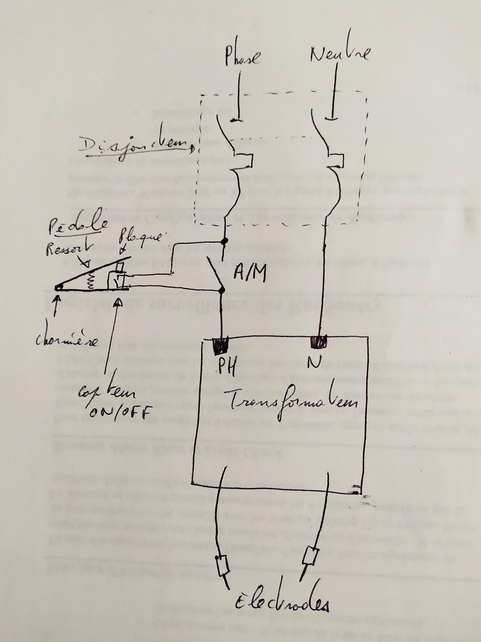 Phase
Neutre
Disjoncteur
Pédale
Ressort
Plaque
A/M
charnière
capteur
ON/OFF
PH
N
Transformateur
Electrodes